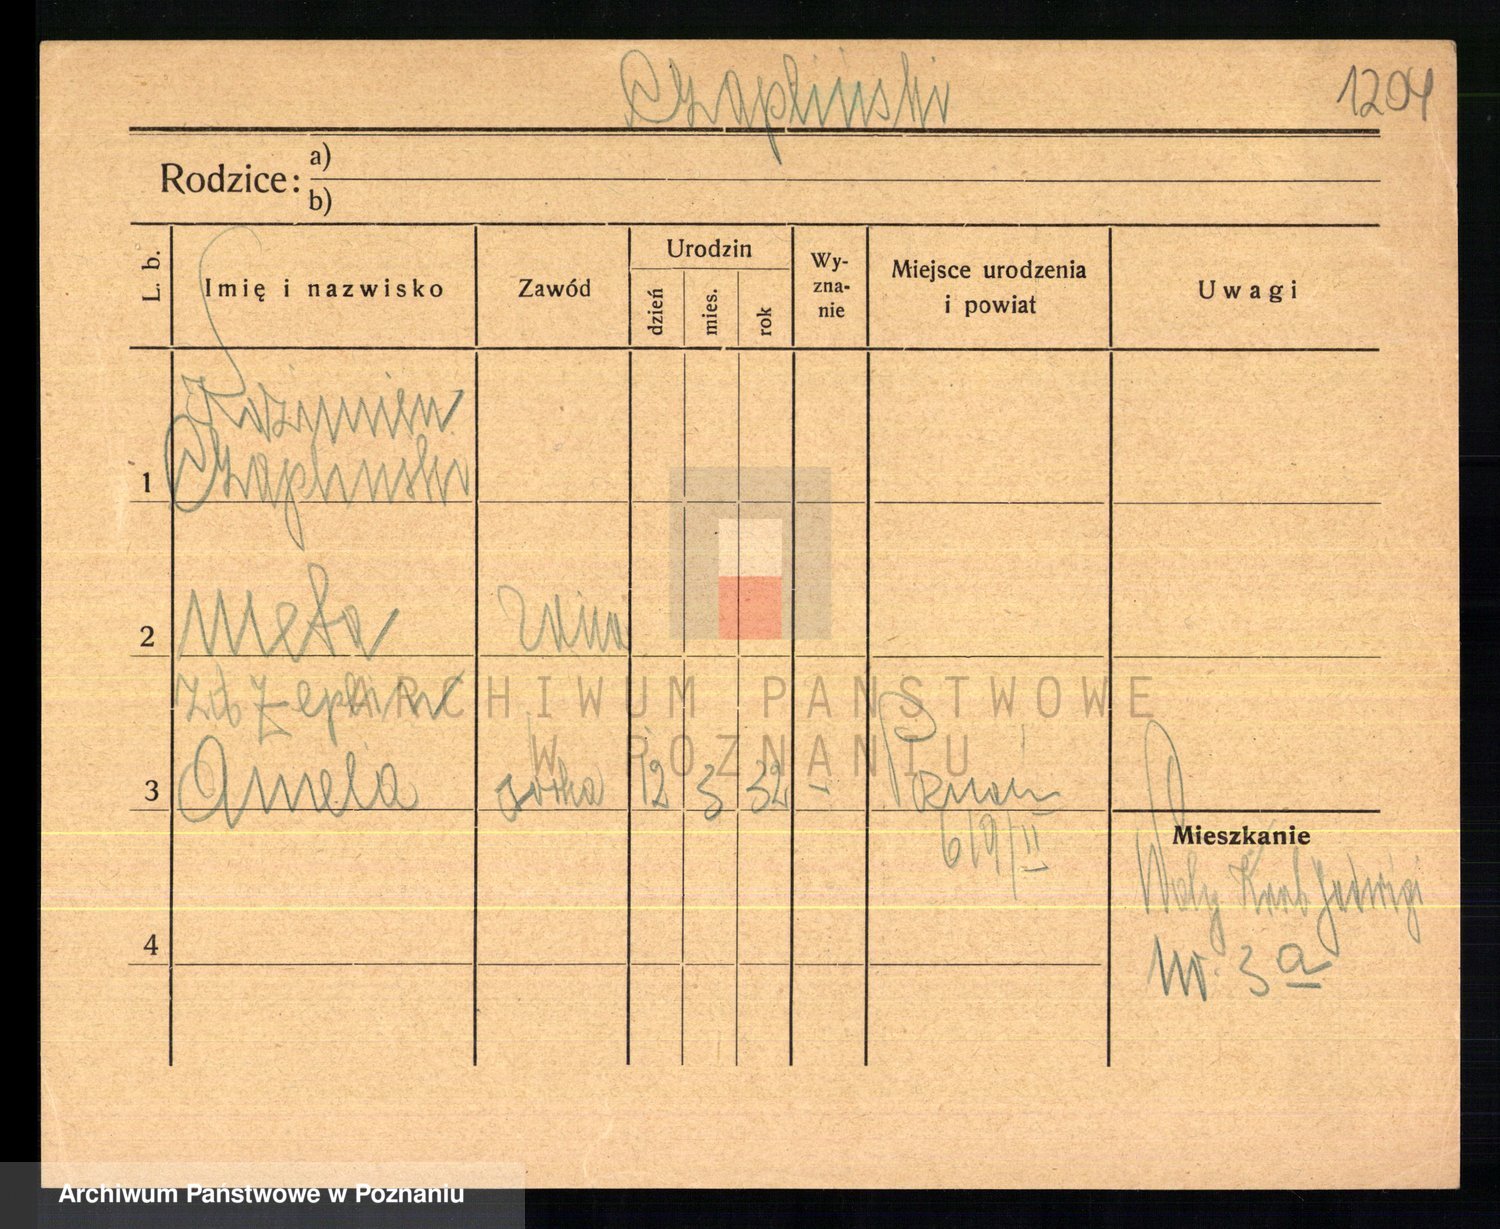 Czapliński
1204
Rodzice:
a)
b)
L. b.
Imię i nazwisko
Zawód
Urodzin
dzień
mies.
rok
Wy-
zna-
nie
Miejsce urodzenia
i powiat
Uwagi
Kazimierz
1 Czapliński
2 Meta żona
3 Aniela córka 12 3 32 - Poznań
6/9/II
Mieszkanie
Wały Król Jadwigi
Nr. 3 a
4
ARCHIWUM PAŃSTWOWE
W POZNANIU
Archiwum Państwowe w Poznaniu